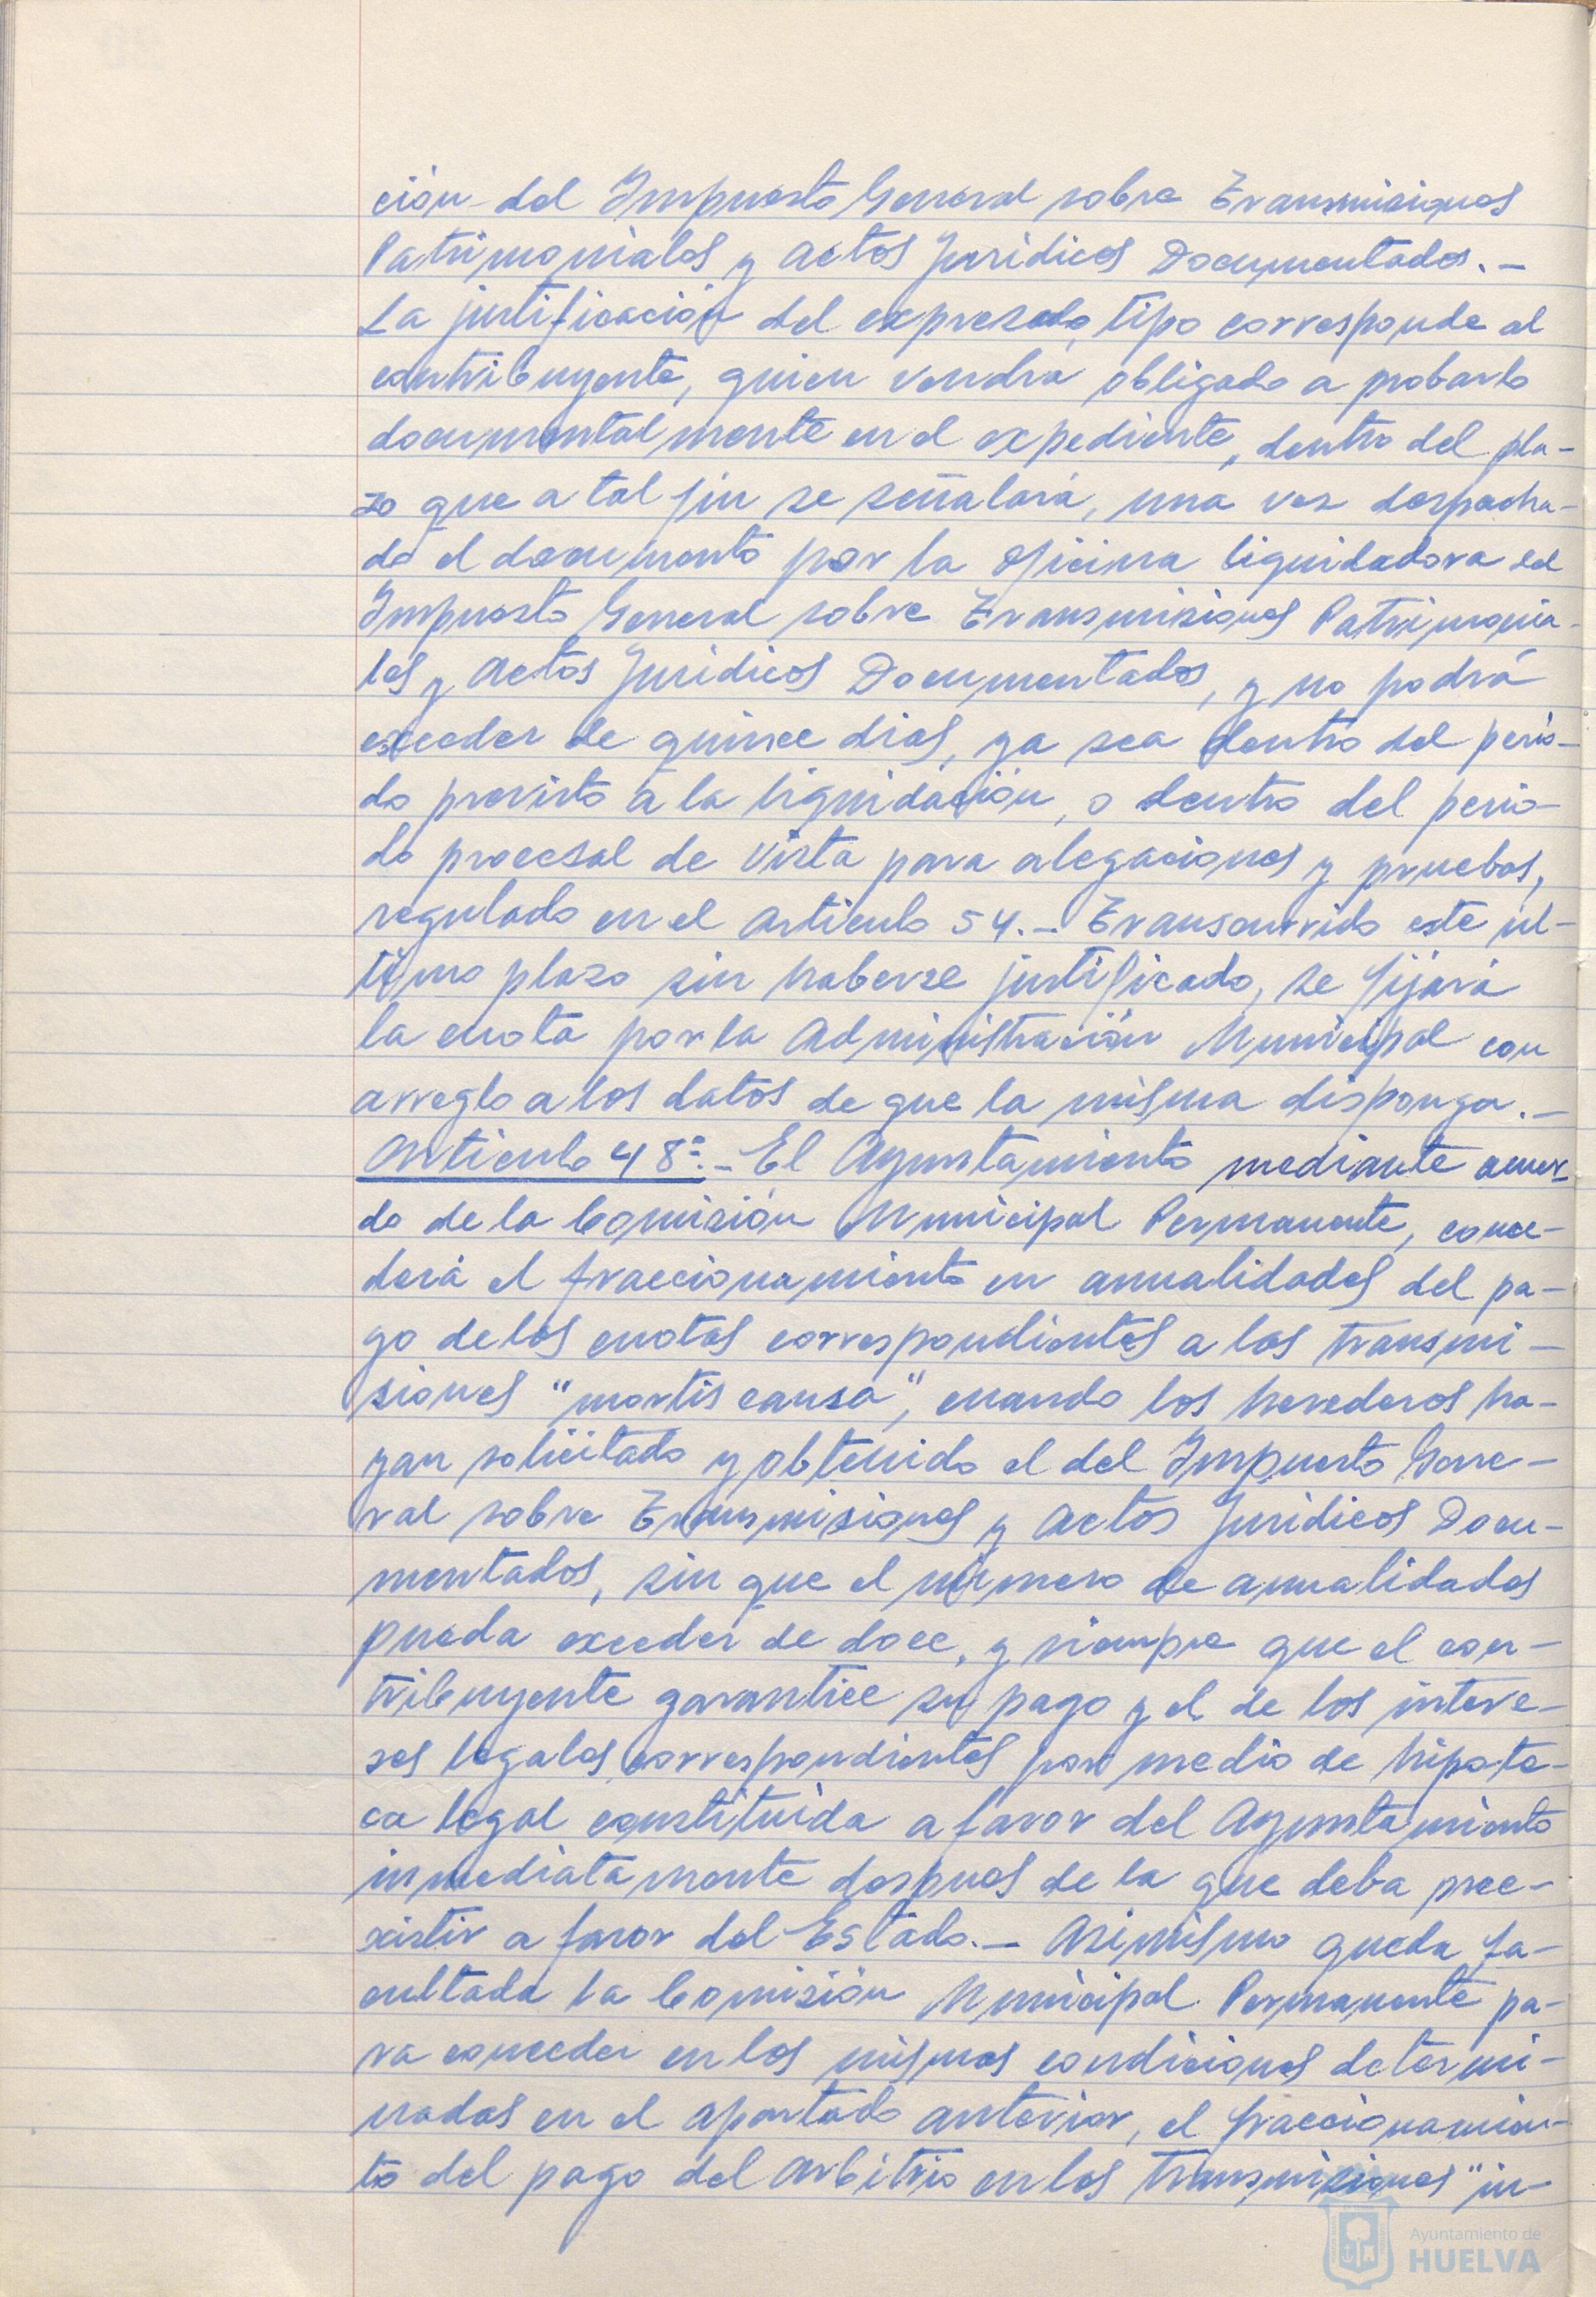 ción del Impuesto General sobre Transmisiones
Patrimoniales y Actos Jurídicos Documentados.—
La justificación del expresado tipo corresponde al
contribuyente, quien vendrá obligado a probarlo
documentalmente en el expediente, dentro del pla-
zo que a tal fin se señalará, una vez despacha-
do el documento por la oficina liquidadora del
Impuesto General sobre Transmisiones Patrimonia-
les y Actos Jurídicos Documentados, y no podrá
exceder de quince dias, ya sea dentro del perio-
do previsto a la liquidación, o dentro del perio-
do procesal de vista para alegaciones y pruebas,
regulado en el Artículo 54.— Transcurrido este úl-
timo plazo sin haberse justificado, se fijará
la cuota por la Administración Municipal con
arreglo a los datos de que la misma disponga.—
Artículo 48º.— El Ayuntamiento mediante acuer-
do de la Comisión Municipal Permanente, conce-
derá el fraccionamiento en anualidades del pa-
go de las cuotas correspondientes a las transmi-
siones "mortis causa", cuando los herederos ha-
yan solicitado y obtenido el del Impuesto Gene-
ral sobre Transmisiones y Actos Jurídicos Docu-
mentados, sin que el número de anualidades
pueda exceder de doce, y siempre que el con-
tribuyente garantice su pago y el de los intere-
ses legales correspondientes por medio de hipote-
ca legal constituida a favor del Ayuntamiento
inmediatamente despues de la que deba pree-
xistir a favor del Estado.— Asimismo queda fa-
cultada la Comisión Municipal Permanente pa-
ra conceder en las mismas condiciones determi-
nadas en el apartado anterior, el fraccionamien-
to del pago del arbitrio en las transmisiones "in-
Ayuntamiento de
HUELVA